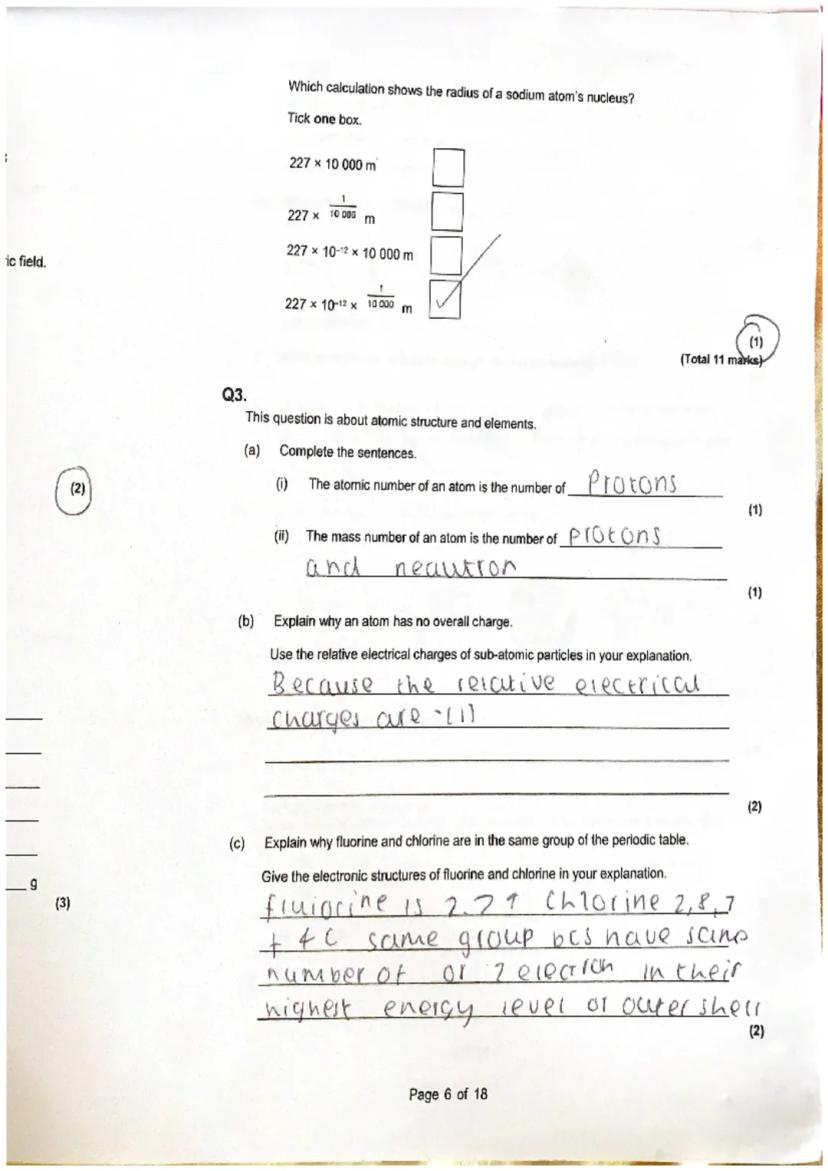 Which calculation shows the radius of a sodium atom's nucleus?
Tick one box.
227 × 10 000 m
227 × 1/10 000 m
ic field.
227 × 10⁻¹² × 10 000 m
227 × 10⁻¹² × 1/10 000 m
(1)
(Total 11 marks)
Q3.
This question is about atomic structure and elements.
(a) Complete the sentences.
(2)
(i) The atomic number of an atom is the number of Protons
(1)
(ii) The mass number of an atom is the number of protons
and neautron
(1)
(b) Explain why an atom has no overall charge.
Use the relative electrical charges of sub-atomic particles in your explanation.
Because the relative electrical
charges are -(1)
(2)
(c) Explain why fluorine and chlorine are in the same group of the periodic table.
Give the electronic structures of fluorine and chlorine in your explanation.
g
(3)
fluiorine is 2.7 Chlorine 2,8,7
same group bcs have same
number of or 7 electron in their
highest energy level or outer shell
(2)
Page 6 of 18